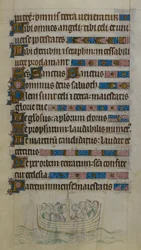 omnis terra veneratur
Tibi omnes angeli tibi celi et uni
verse potestates
Tibi cherubin et seraphin incessabili
voce proclamant
Sanctus Sanctus
dominus deus sabaoth
Pleni sunt celi et terra maiestatis
glorie tue
Te gloriosus apostolorum chorus
Te prophetarum laudabilis numerus
Te martirum candidatus laudat ex
ercitus
Te per orbem terrarum sancta confite
tur ecclesia
Patrem immense maiestatis